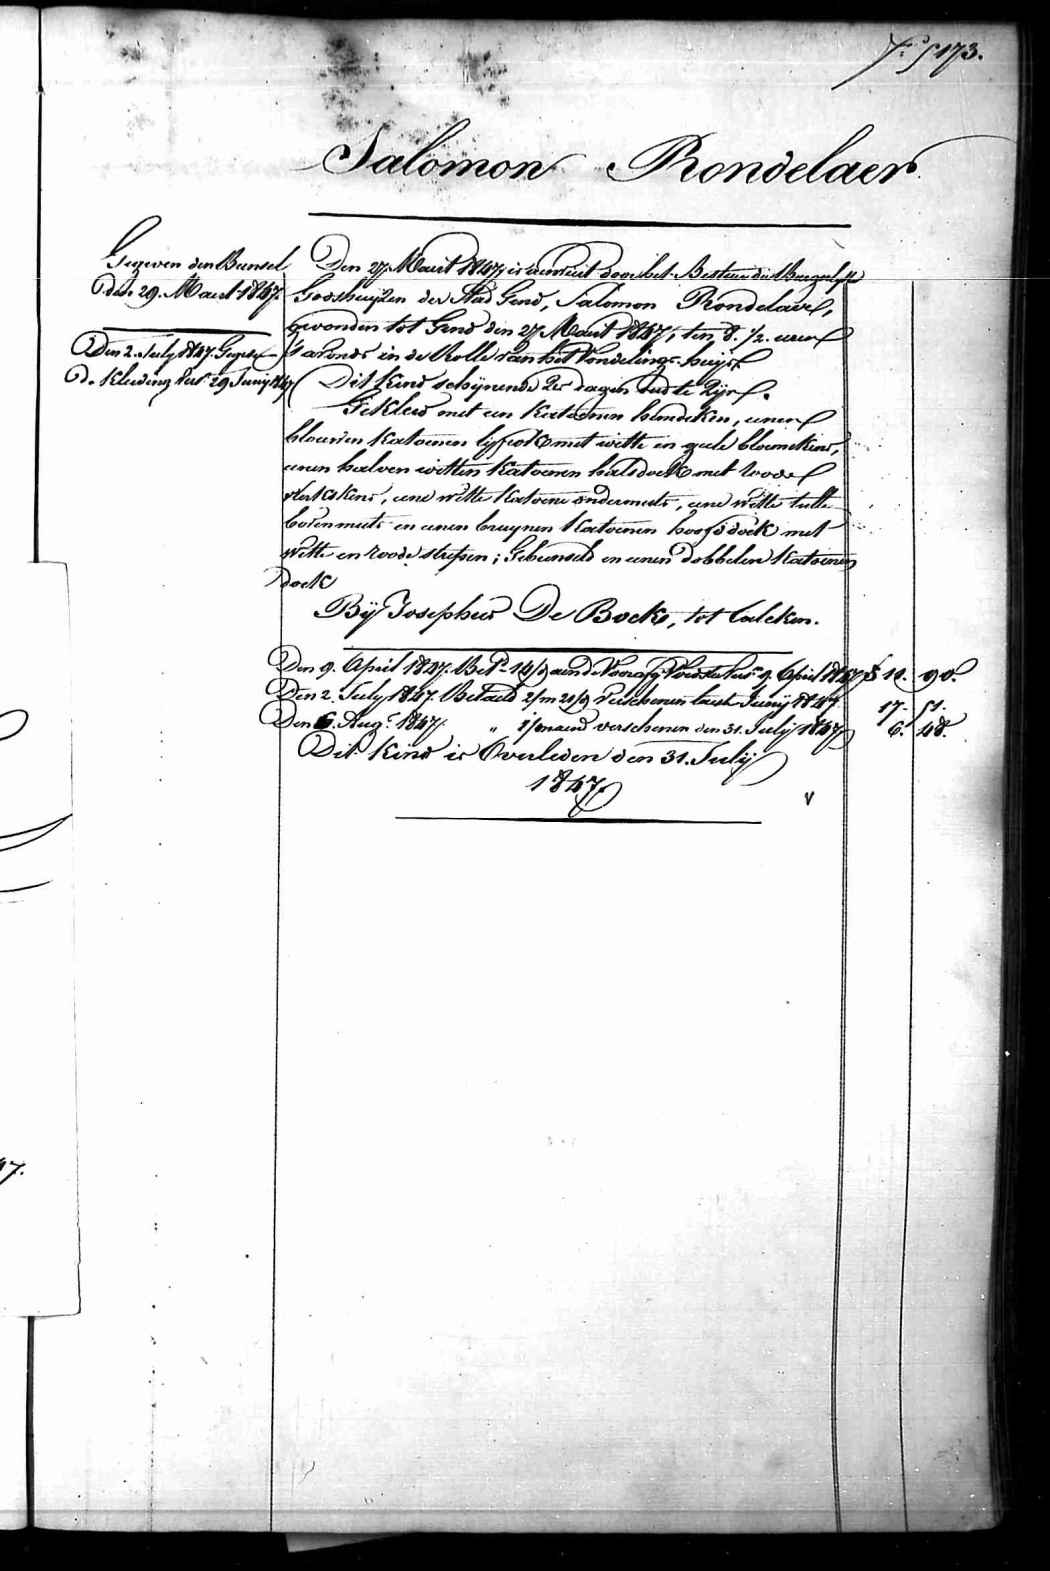 Fº 5173.
Salomon Rondelaer
Gegeven den Bunsel
den 29. Maart 1847.
Den 2. July 1847 Gegeven
de Kleeding vers. 29 Junij 1847
Den 27 Maart 1847, is aenveird door het Bestuur der Burgerlyke
Godshuijzen der Stad Gend, Salomon Rondelaer,
gevonden tot Gend den 27 Maart 1847, ten 8. 1/2. uren
's avonds in de Rolle van het Vondelings-huijs.
Dit kind schijnende 2 dagen oud te zijn.
Gekleed met een katoenen hemdeken, eenen
blauwen katoenen lyfrok met witte en geele bloemekens,
eenen halven witten katoenen halsdoek met roode
vlekskens, eene witte katoene ondermuts, eene witte tulle
bovenmuts en eenen bruynen katoenen hoofddoek met
witte en roode strepen; Gebunseld in eenen dobbelen katoenen
doek
Bij Josephus De Bock, tot Calcken.
Den 9. April 1847. Bet. 14/ Voorafg. 9. April 1847 f 11. 90.
Den 2. July 1847. Betaeld 2/m 21/ verschenen laest Junij 1847 17. 51.
Den 6. Augt. 1847. " 1/maend verschenen den 31. July 1847 6. 48.
Dit kind is Overleden den 31. Julij
1847.
v
47.